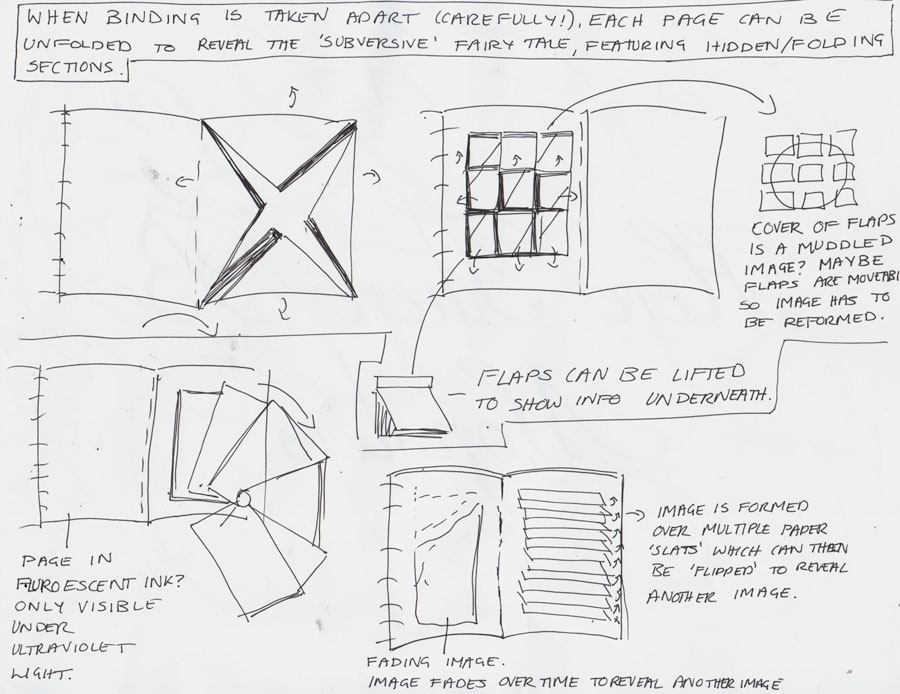 WHEN BINDING IS TAKEN APART (CAREFULLY!), EACH PAGE CAN BE
UNFOLDED TO REVEAL THE 'SUBVERSIVE' FAIRY TALE, FEATURING HIDDEN/FOLDING
SECTIONS.
COVER OF FLAPS
IS A MUDDLED
IMAGE? MAYBE
FLAPS ARE MOVEABL
SO IMAGE HAS TO
BE REFORMED.
FLAPS CAN BE LIFTED
TO SHOW INFO UNDERNEATH.
PAGE IN
FLUROESCENT INK?
ONLY VISIBLE
UNDER
ULTRAVIOLET
LIGHT.
IMAGE IS FORMED
OVER MULTIPLE PAPER
'SLATS' WHICH CAN THEN
BE 'FLIPPED' TO REVEAL
ANOTHER IMAGE.
FADING IMAGE.
IMAGE FADES OVER TIME TO REVEAL ANOTHER IMAGE